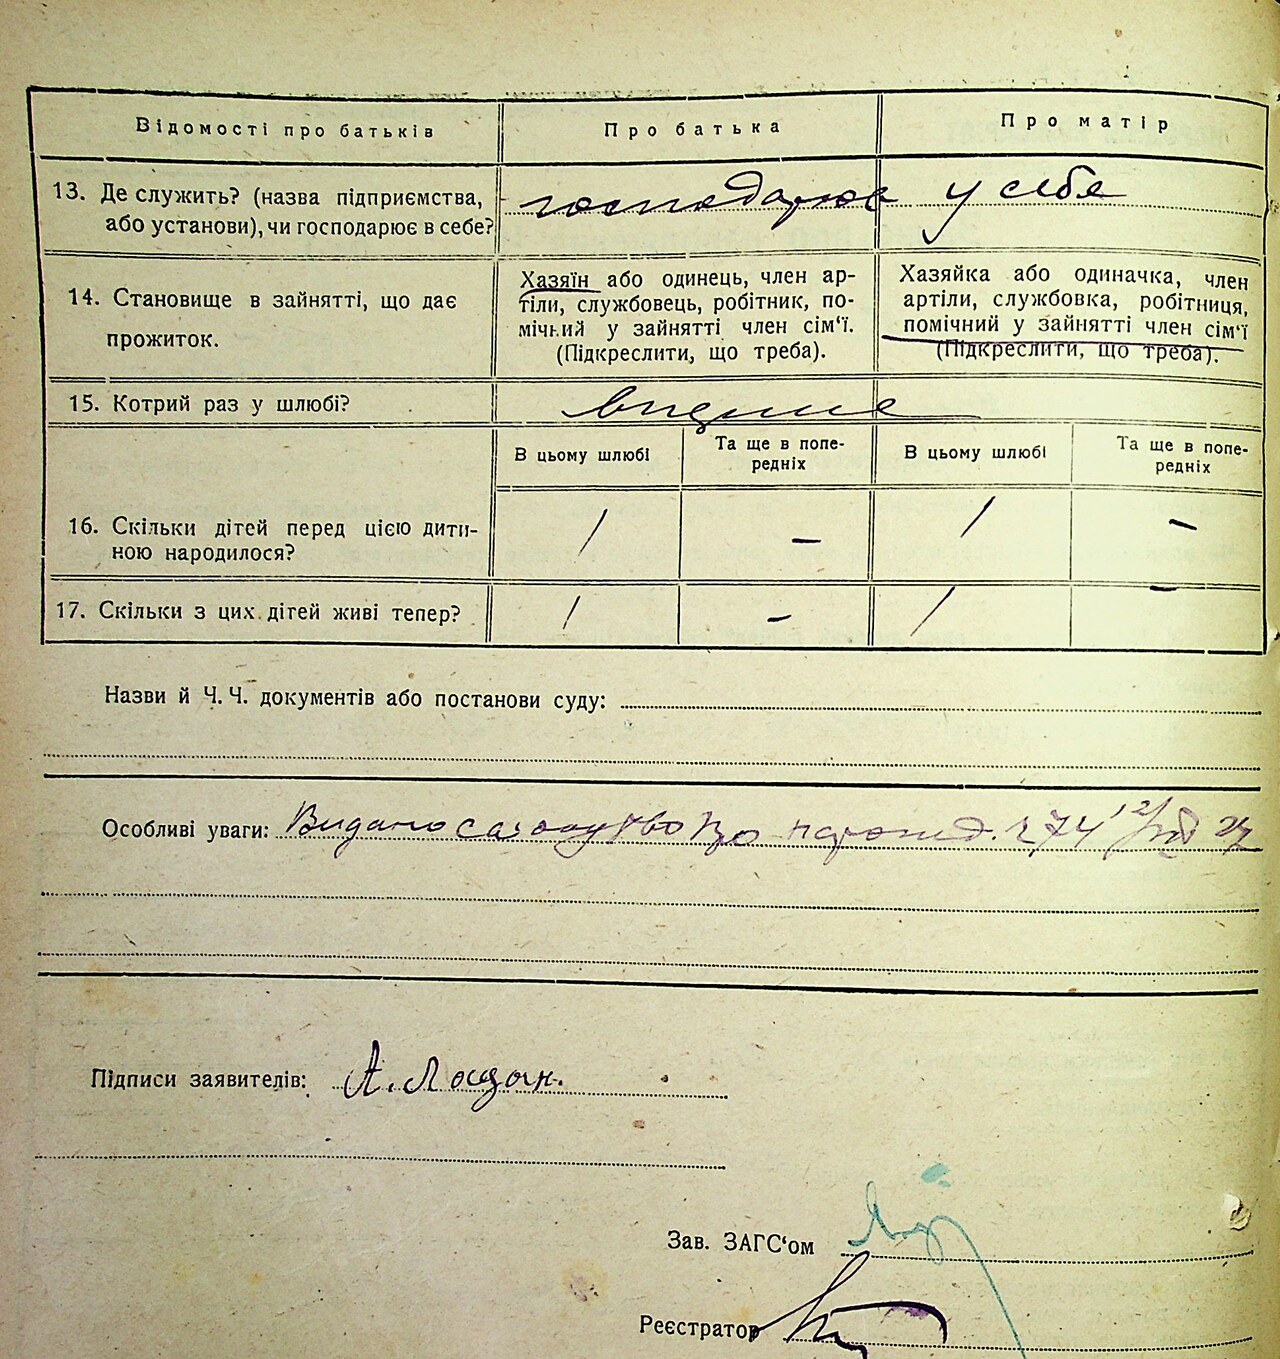 Відомості про батьків
Про батька
Про матір
13. Де служить? (назва підприємства,
або установи), чи господарює в себе?
господарює у себе
14. Становище в зайнятті, що дає
прожиток.
Хазяїн або одинець, член ар-
тіли, службовець, робітник, по-
мічний у зайнятті член сім'ї.
(Підкреслити, що треба).
Хазяйка або одиначка, член
артіли, службовка, робітниця,
помічний у зайнятті член сім'ї
(Підкреслити, що треба).
15. Котрий раз у шлюбі?
В цьому шлюбі
Та ще в попе-
редніх
В цьому шлюбі
Та ще в попе-
редніх
16. Скільки дітей перед цією дити-
ною народилося?
/ - / -
17. Скільки з цих дітей живі тепер?
/ - / -
Назви й Ч. Ч. документів або постанови суду:
Особливі уваги: Видано про 274 27
Підписи заявителів: А.
Зав. ЗАГС'ом
Реєстратор